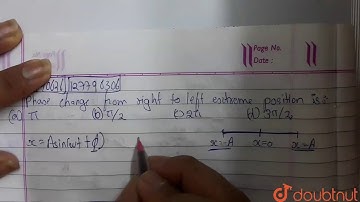 Page No.
Date :
127796306
Phase change from right to left extreme position is :-
(a) π (b) π/2 (c) 2π (d) 3π/2
x = A sin(ωt + ϕ)
x=-A x=0 x=A
doubtnut